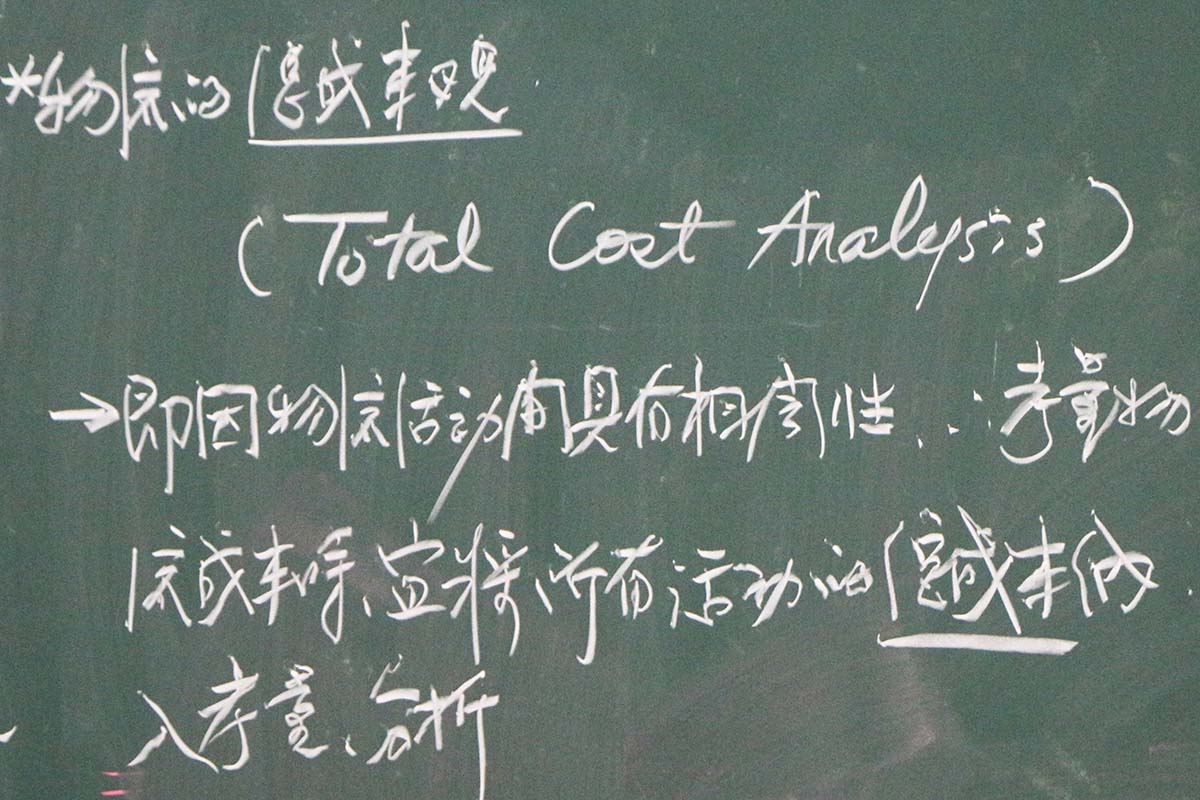 *物流的總成本觀
(Total Cost Analysis)
→即因物流活動間具有相關性,∴考量物
流成本時、宜將所有活動的總成本納
入考量、分析